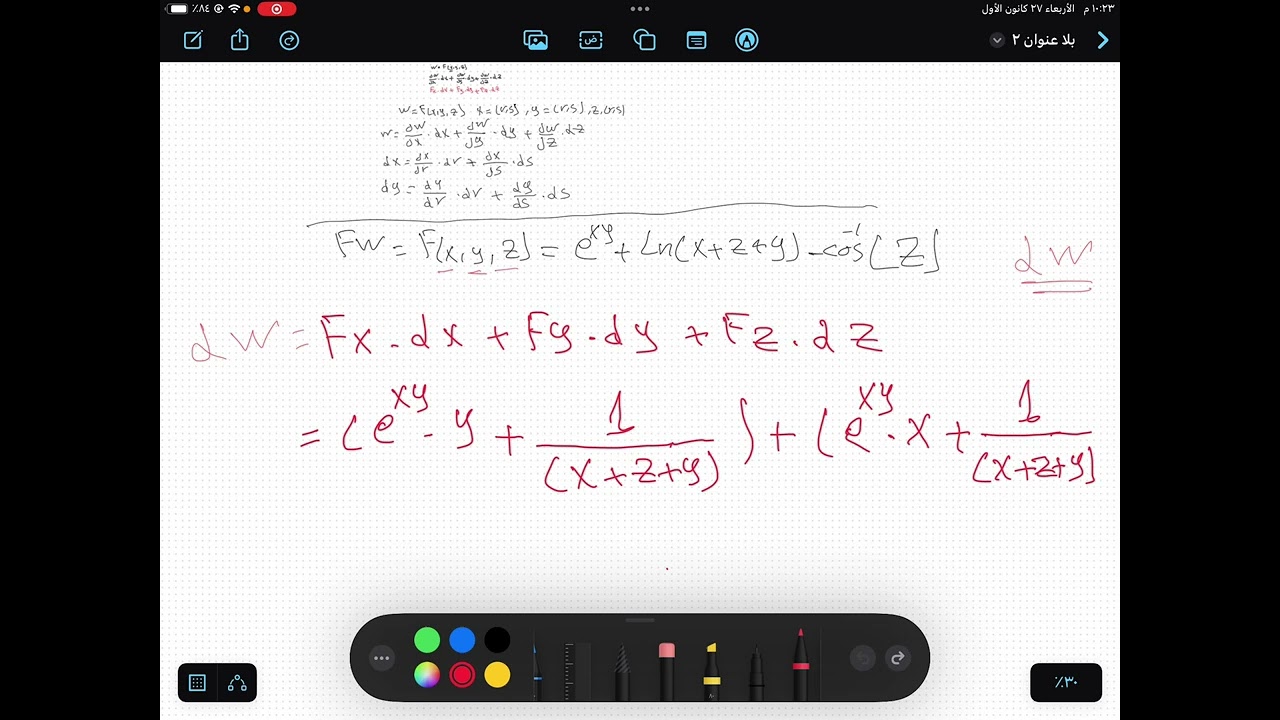 ١٠:٢٣ م الأربعاء ٢٧ كانون الأول
٨٤٪
بلا عنوان ٢
w=F(x,y,z)
dw/dx·dx+dw/dy·dy+dw/dz·dz
Fx·dx+Fy·dy+Fz·dz
w=F(x,y,z) x=(r,s), y=(r,s), z,(r,s)
w=dw/dx·dx+dw/dy·dy+dw/dz·dz
dx=dx/dr·dr+dx/ds·ds
dy=dy/dr·dr+dy/ds·ds
Fw=F(x,y,z)=e^xy+Ln(x+z+y)-cos^-1(Z)
dw
dw=Fx·dx+Fy·dy+Fz·dz
=(e^xy·y+1/(x+z+y))+(e^xy·x+1/(x+z+y)
٣٠٪